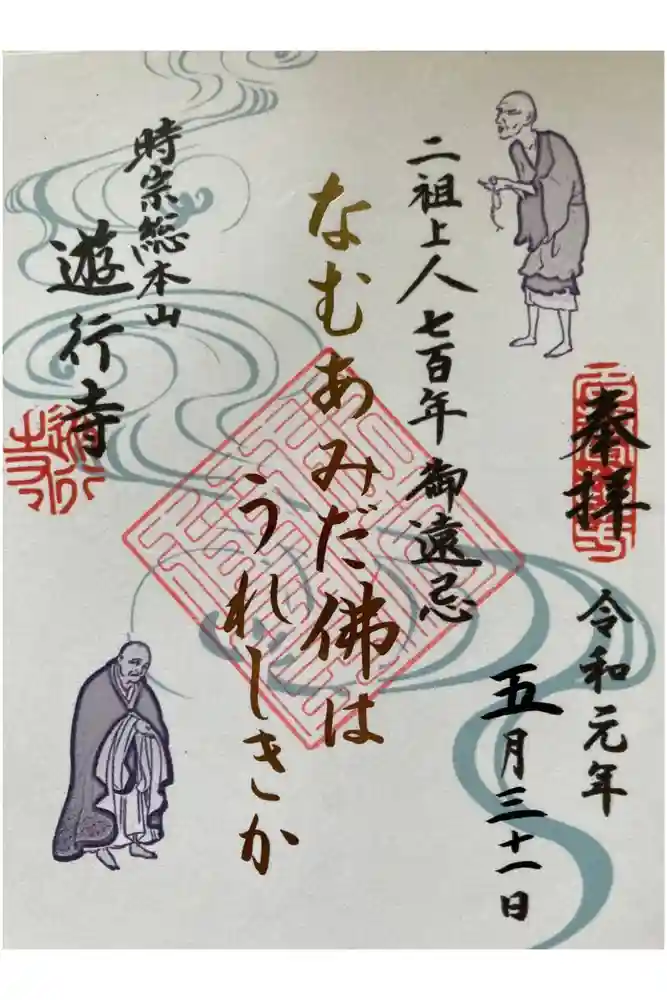 奉拝
令和元年
五月三十一日
二祖上人七百年御遠忌
なむあみだ佛は
うれしきか
時宗総本山
遊行寺